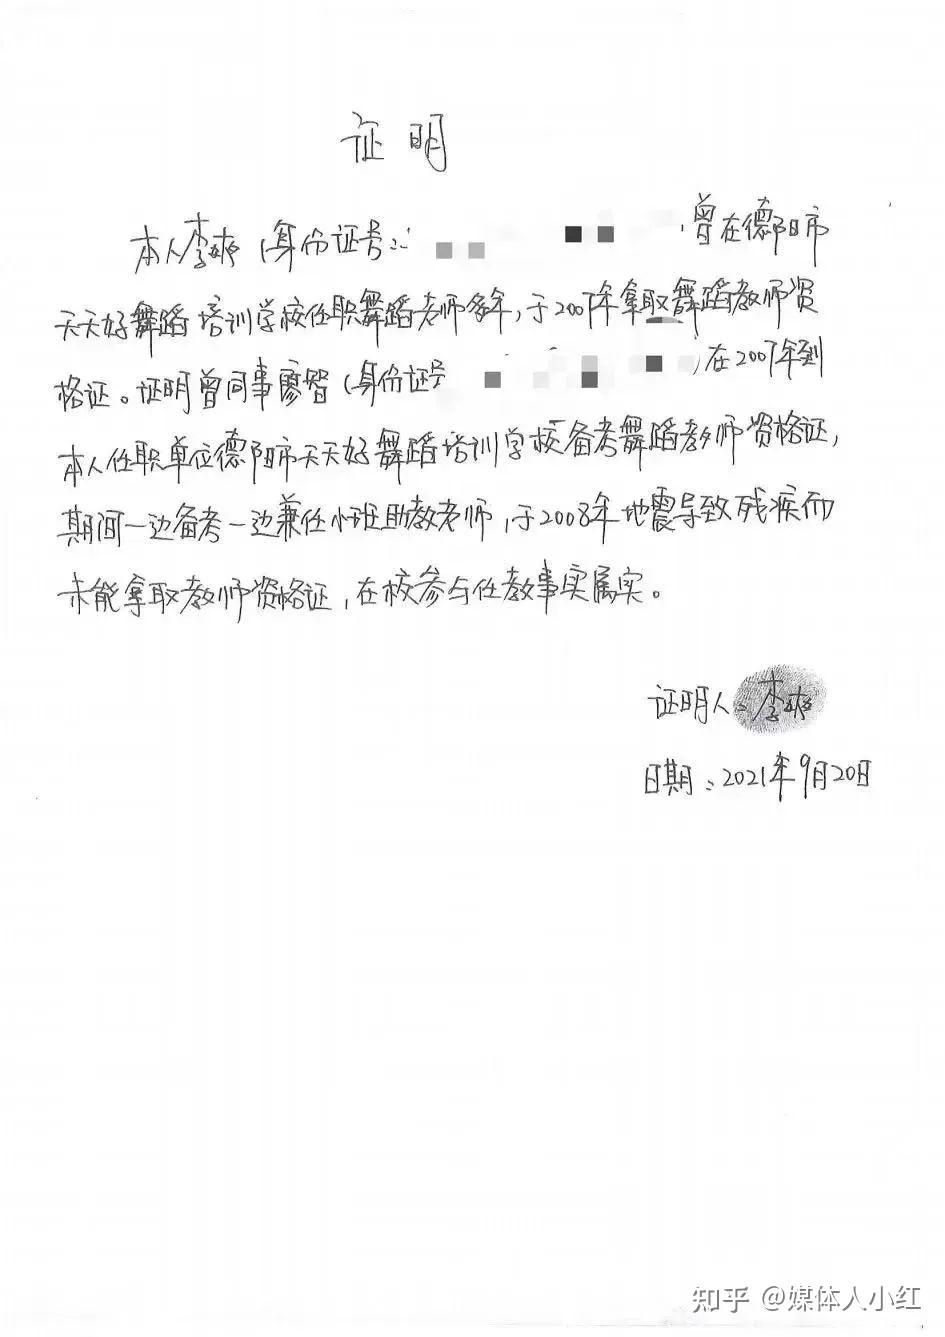 证明
本人李爽(身份证号:    ,曾在德阳市
天天好舞蹈培训学校任职舞蹈老师多年,于2007年拿取舞蹈教师资
格证。证明曾同事廖智(身份证号    )在2007年到
本人任职单位德阳市天天好舞蹈培训学校备考舞蹈教师资格证,
期间一边备考一边兼任小班助教老师,于2008年地震导致残疾而
未能拿取教师资格证,在校参与任教事实属实。
证明人:李爽
日期:2021年9月20日
知乎 @媒体人小红